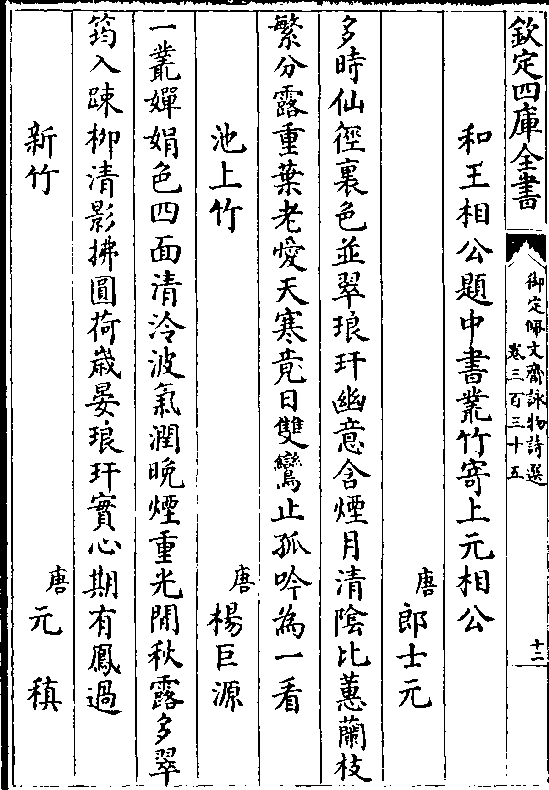 欽定四庫全書
御定佩文齋詠物詩選
卷三百三十五
十二
和王相公題中書叢竹寄上元相公
唐 郎士元
多時仙徑裏色並翠琅玕幽意含煙月清陰比蕙蘭枝
繁分露重葉老愛天寒竟日雙鸞止孤吟為一看
池上竹
唐 楊巨源
一叢嬋娟色四面清泠波氣潤晚煙重光閒秋露多翠
筠入踈栁清影拂圓荷歳晏琅玕實心期有鳳過
新竹
唐 元 稹